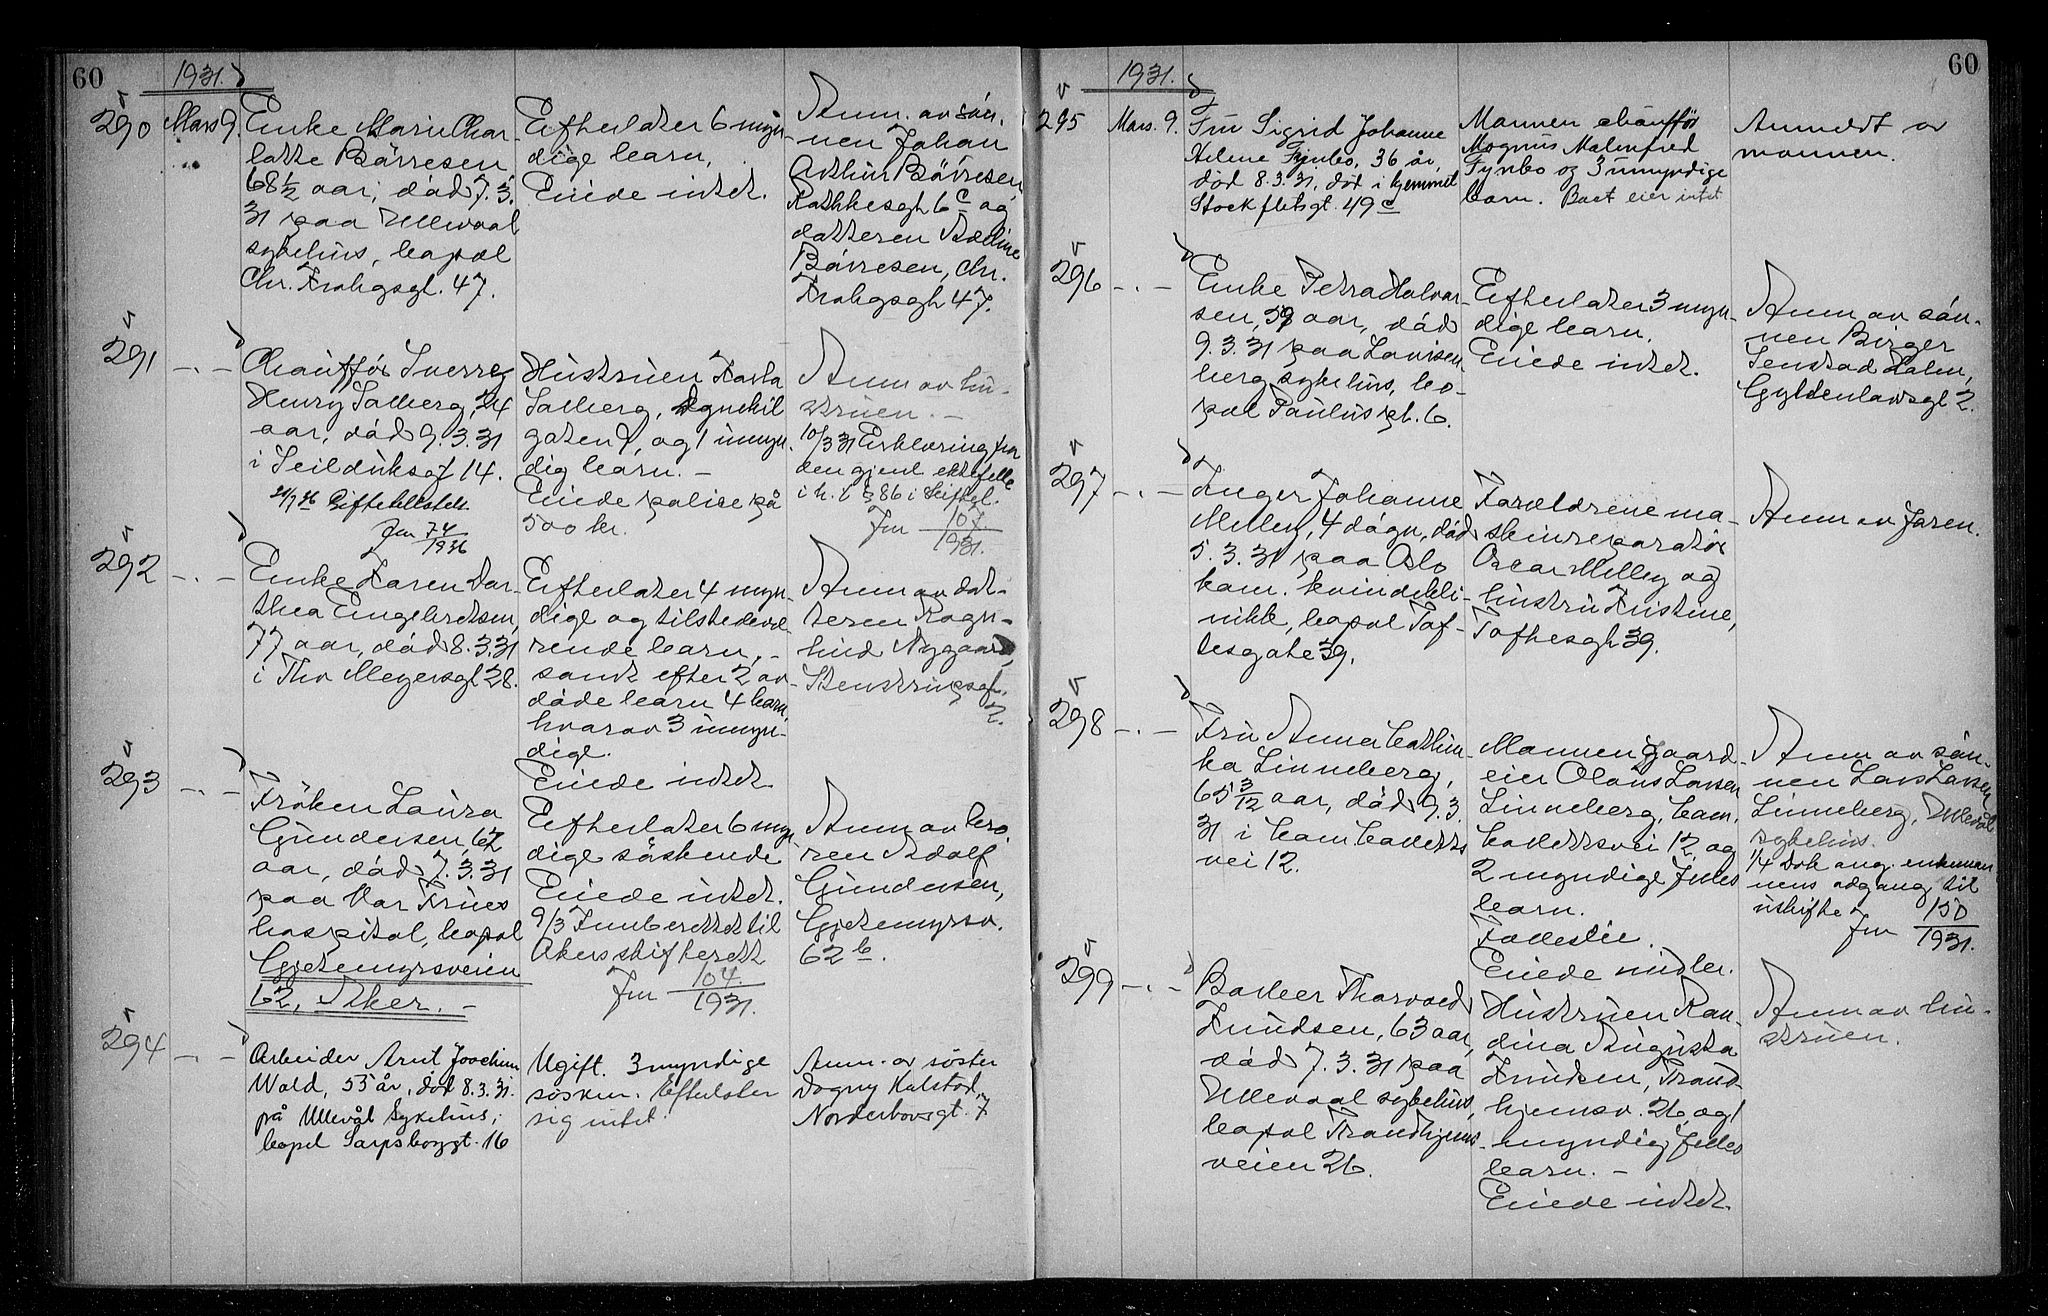 60
1931.
290
Mars 9.
Enke Marie Char
lotte Börresen
68½ aar, död 7.3.
31 paa Ullevaal
sykehus, bopæl
Chr. Krohgsgt. 47.
Efterlater 6 myn
dige barn.
Eiede intet.
Anm. av søn
nen Johan
Arthur Börresen
Rathkesgt 6c og
datteren Adeline
Börresen, Chr.
Krohgsgt 47.
291
-.-
Chauffør Sverre
Henry Solberg, 24
aar, död 9.3.31
i Seilduksgt 14.
Jm 74/1936
Hustruen Karla
Solberg, Øgnekil
gaten 9, og 1 umyn
dig barn. -
Eiede polise på
500 kr.
Anm av hu-
struen. -
10/3 31 Erklæring fra
den gjenl. ektefelle
i h. t. § 86 i Skiftel.
Jm 107/1931.
292
-.-
Enke Karen Dor-
thea Engebretsen,
77 aar, död 8.3.31
i Thv Meyersgt 28.
Efterlater 4 myn
dige og tilstedevæ
rende barn, -
samt efter 2 av
döde barn 4 barn,
hvorav 3 umyn-
dige.
Eiede intet
Anm av dat-
teren Ragn-
hild Nygaard,
Stenstrupsgt.
2.
293
-.-
Fröken Laura
Gundersen, 62
aar, död 7.3.31
paa Vor Frues
hospital, bopæl
Gjetemyrsveien
62, Aker. -
Efterlater 6 myn
dige söskende
Eiede intet.
9/3 Innberettet til
Akers skifterett
Jm 104/1931.
Anm av bro
ren Adolf
Gundersen,
Gjetemyrsv.
62b.
294
-.-
Arbeider Arnt Joachim
Wold, 55 år, död 8.3.31.
på Ullevål Sykehus,
bopel Sarpsborggt. 16
Ugift. 3 myndige
søsken. Efterlater
sig intet.
Anm. av søster
Dagny Kalstad,
Norderhovsgt. 7
60
1931.
295
Mars. 9.
Fru Sigrid Johanne
Helene Fynbo, 36 år,
død 8.3.31, død i hjemmet
Stockfletsgt. 49c
Mannen chauffør
Magnus Malmfred
Fynbo og 3 umyndige
barn. Boet eier intet
Anmeldt av
mannen.
296
-.-
Enke Petra Halvor-
sen, 59 aar, död
9.3.31 paa Lovisen
berg sykehus, bo-
pæl Pauluspl. 6.
Efterlater 3 myn-
dige barn.
Eiede intet.
Anm av søn-
nen Birger
Senstad Holm,
Gyldenløvesgt 2.
297
-.-
Inger Johanne
Melley, 4 dágn, död
5.3.31 paa Oslo
kom. kvindekli-
nikk, bopæl Tof-
tesgate 39.
Forældrene ma-
skinreparatör
Oscar Melley og
hustru Kristine,
Toftesgt 39.
Anm av faren.
298
-.-
Fru Anna Cathin-
ka Linneberg,
65 3/12 aar, död 9.3.
31 i Cam Colletts
vei 12.
Mannen gaard-
eier Olaus Larsen
Linneberg, Cam.
Collettsvei 12, og
2 myndige felles
barn.
Eiede midler.
Anm av søn-
nen Lars Larsen
Linneberg, Ullevål
sykehus.
1/4 Dok ang. enkeman
nens adgang til
uskifte Jm 150/1931.
299
-.-
Bokeer Thorvald
Knudsen, 63 aar,
död 7.3.31 paa
Ullevaal sykehus,
bopæl Trondhjems
veien 26.
Hustruen Ran-
dina Augusta
Knudsen, Trond
hjemsv. 26, og 1
myndig felles
barn. -
Eiede intet.
Anm av hu-
struen.